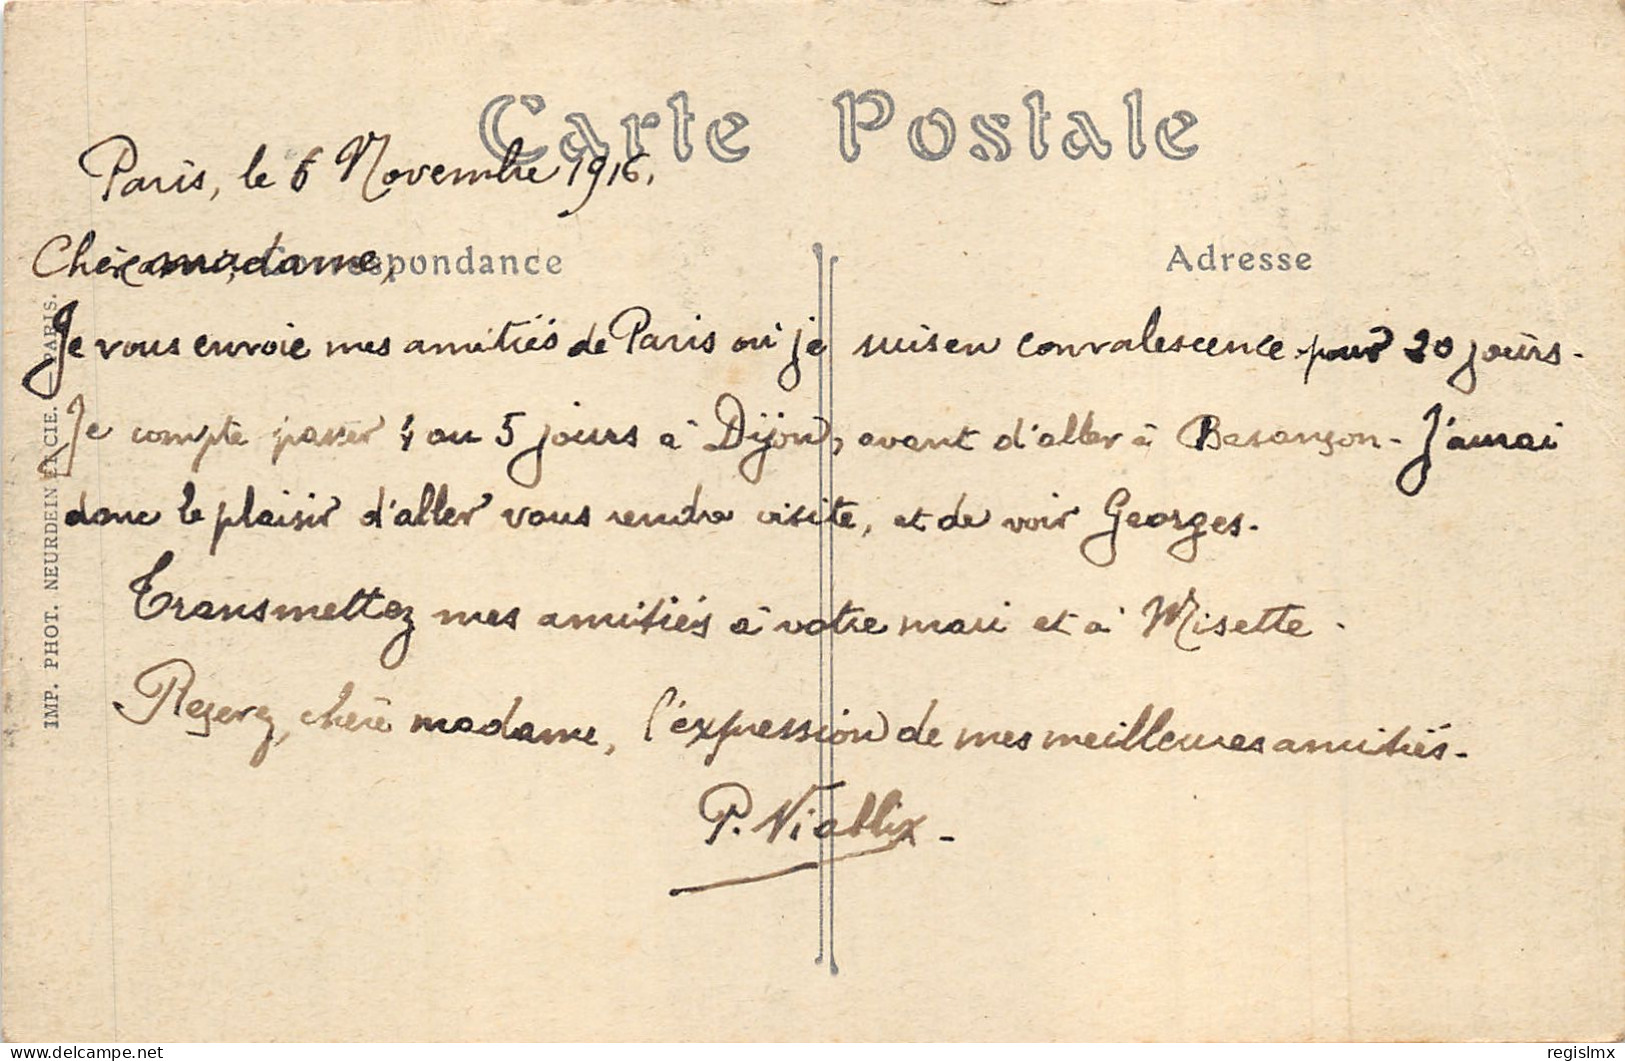 Carte Postale
Paris, le 6 Novembre 1916.
Correspondance
Adresse
Chère madame,
Je vous envoie mes amitiés de Paris où je suis en convalescence pour 20 jours.
Je compte passer 4 ou 5 jours à Dijon, avant d'aller à Besançon - J'aurai
donc le plaisir d'aller vous rendre visite, et de voir Georges.
Transmettez mes amitiés à votre mari et à Misette.
Recevez, chère madame, l'expression de mes meilleures amitiés.
P.
IMP. PHOT. NEURDEIN ET CIE. PARIS.
delcampe.net
regislmx